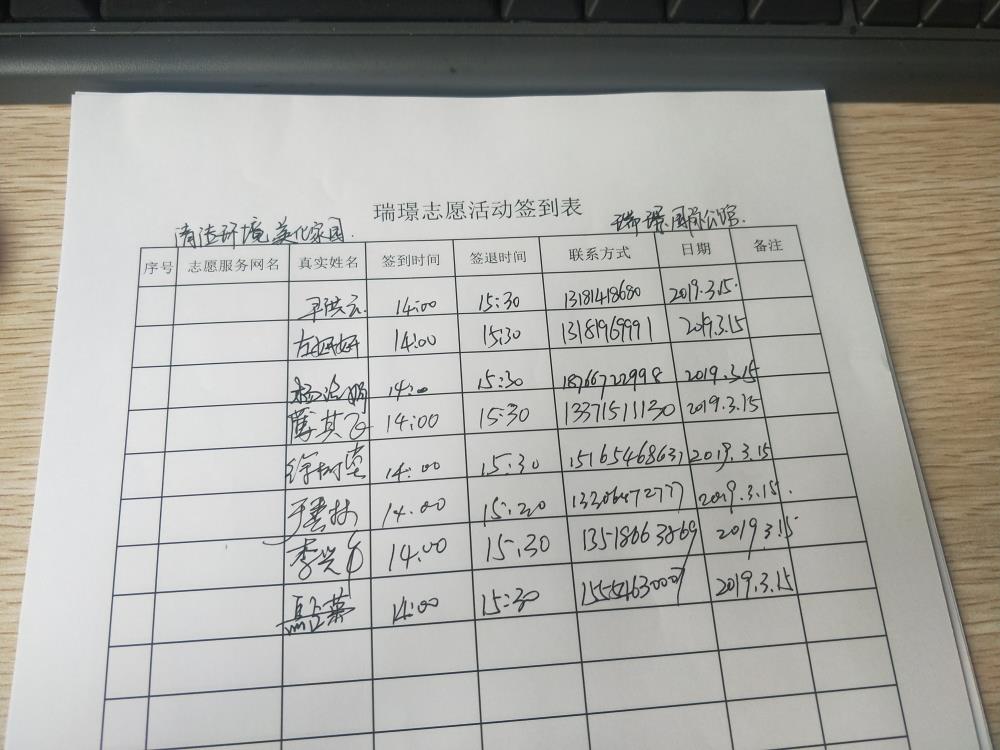 瑞璟志愿活动签到表
清洁环境 美化家园. 瑞璟国际公馆.
序号 志愿服务网名 真实姓名 签到时间 签退时间 联系方式 日期 备注
14:00 15:30 13181418680 2019.3.15.
左妍妍 14:00 15:30 13181969991 2019.3.15
杨 14:00 15:30 18766722998 2019.3.15
其飞 14:00 15:30 13371511130 2019.3.15
徐树 14:00 15:30 15165468631 2019.3.15
14.00 15:20 13206472777 2019.3.15.
李兴 14.00 15.30 13518663869 2019.3.15
14:00 15:30 15554630007 2019.3.15